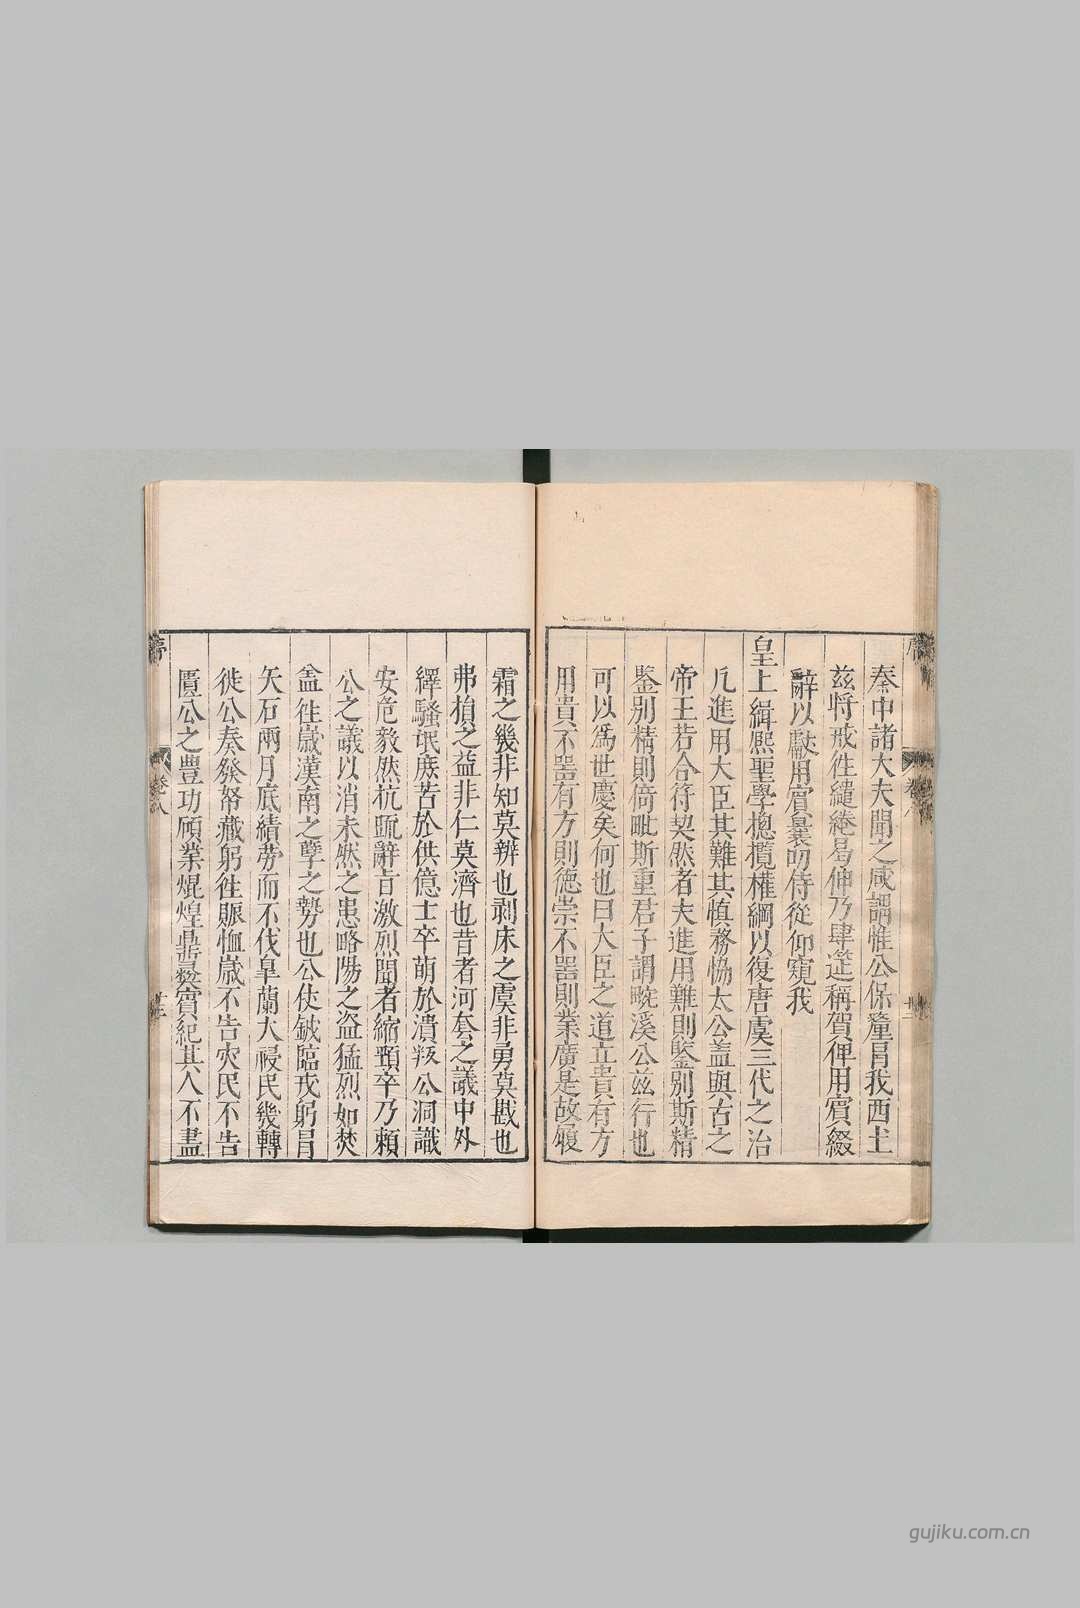 秦中諸大夫聞之咸謂惟公保釐昌我西土
茲將戒徃繾綣曷伸乃肆筵稱賀俾用賓綴
辭以獻用賓曩叨侍從仰窺我
皇上緝熈聖學摠攬權綱以復唐虞三代之治
凡進用大臣其難其慎務恊太公盖與古之
帝王若合符契然者夫進用難則鑒别斯精
鑒别精則倚毗斯重君子謂畹溪公兹行也
可以爲世慶矣何也曰大臣之道立貴有方
用貴不器有方則徳崇不器則業廣是故履
霜之幾非知莫辨也剥床之虞非勇莫戡也
弗損之益非仁莫濟也昔者河套之議中外
繹騷氓庶苦於供億士卒萌於潰叛公洞識
安危毅然抗疏辭旨激烈聞者縮頸卒乃賴
公之議以消未然之患略陽之盜猛烈如焚
盖徃嵗漢南之孽之勢也公伏鉞臨戎躬冒
矢石兩月底績勞而不伐臯蘭大祲民幾轉
徙公奏發帑藏躬徃賑恤嵗不告灾民不告
匱公之豐功頎業焜煌鼎彛賓紀其人不盡
序
卷八
十三
gujiku.com.cn